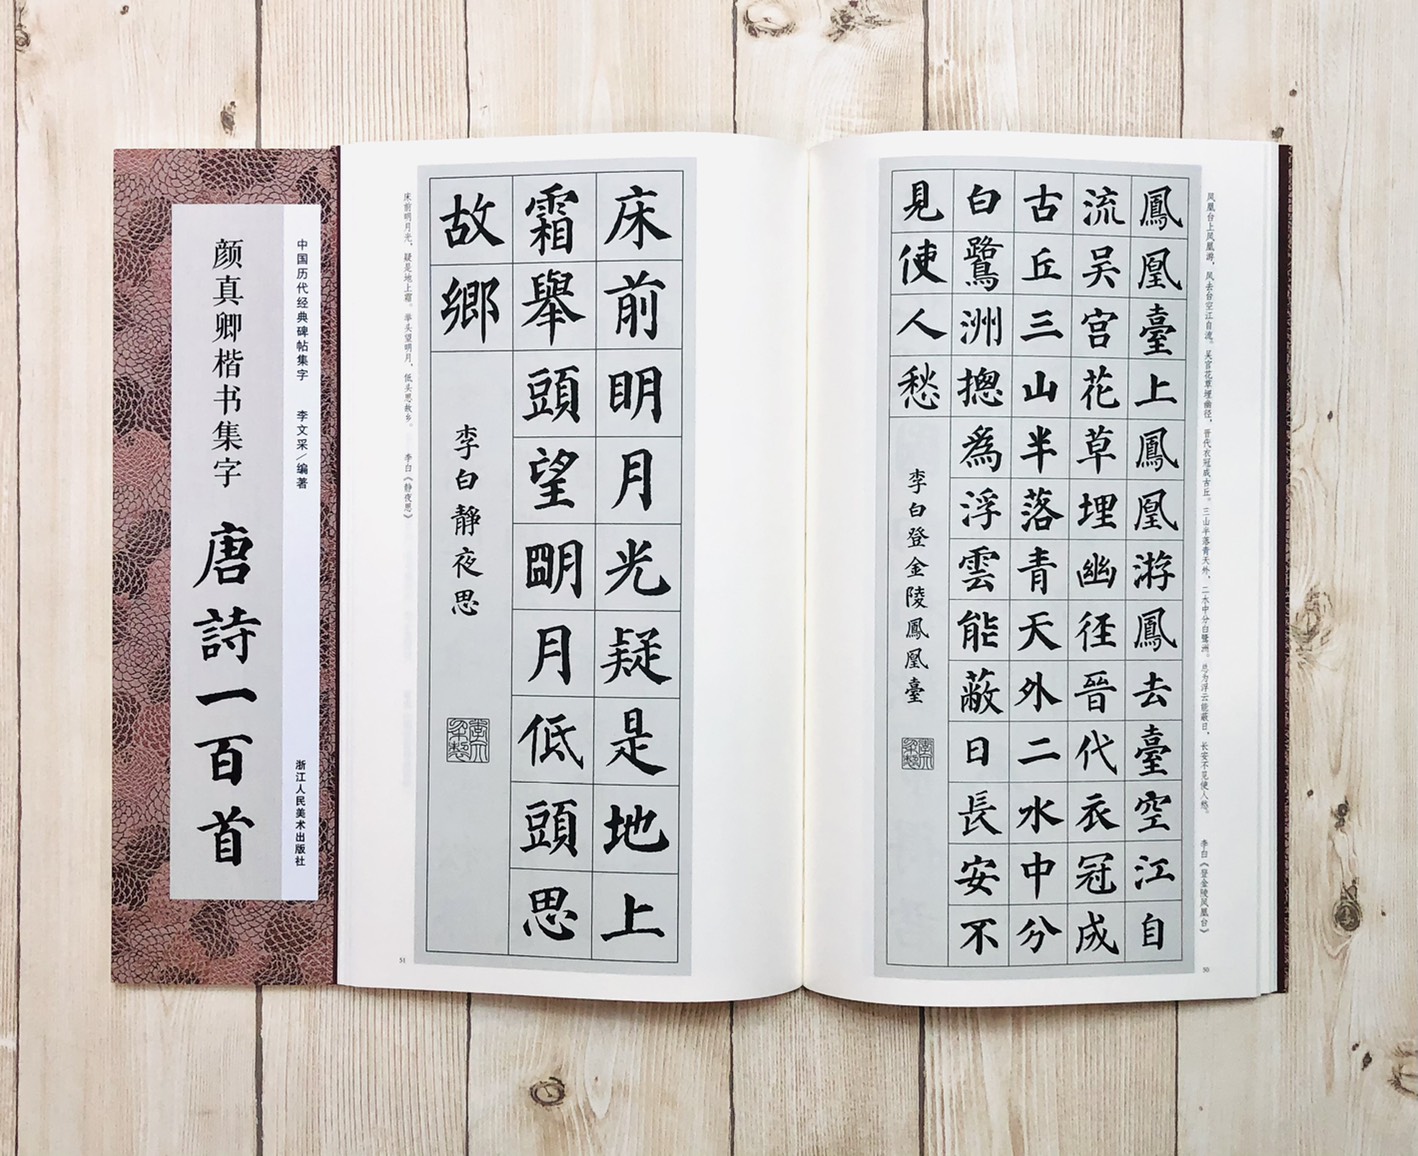 凤凰台上凤凰游，凤去台空江自流。吴宫花草埋幽径，晋代衣冠成古丘。三山半落青天外，二水中分白鹭洲。总为浮云能蔽日，长安不见使人愁。 李白《登金陵凤凰台》
鳳凰臺上鳳凰游鳳去臺空江自
流吴宫花草埋幽徑晉代衣冠成
古丘三山半落青天外二水中分
白鷺洲摠為浮雲能蔽日長安不
見使人愁
李白登金陵鳳凰臺
李文采製
50
床前眀月光疑是地上
霜舉頭望朙月低頭思
故鄉
李白靜夜思
李文采製
床前明月光，疑是地上霜。举头望明月，低头思故乡。 李白《静夜思》
51
中国历代经典碑帖集字 李文采／编著 浙江人民美术出版社
颜真卿楷书集字 唐詩一百首